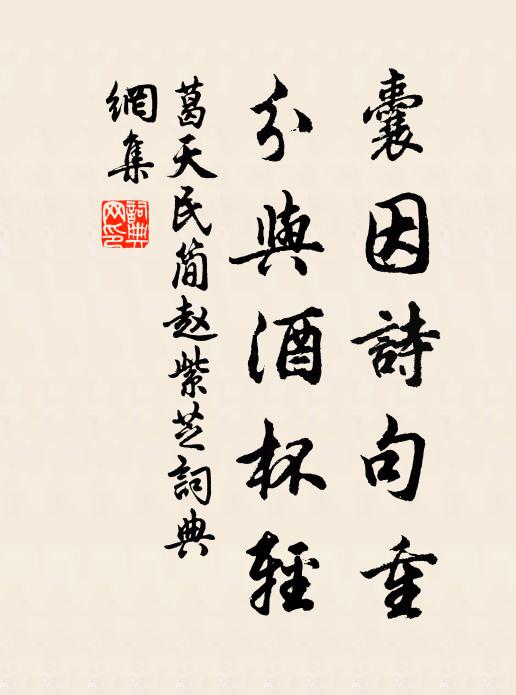 囊因詩句重
分與酒杯輕
葛天民简赵紫芝詞典
網集
詞典网印